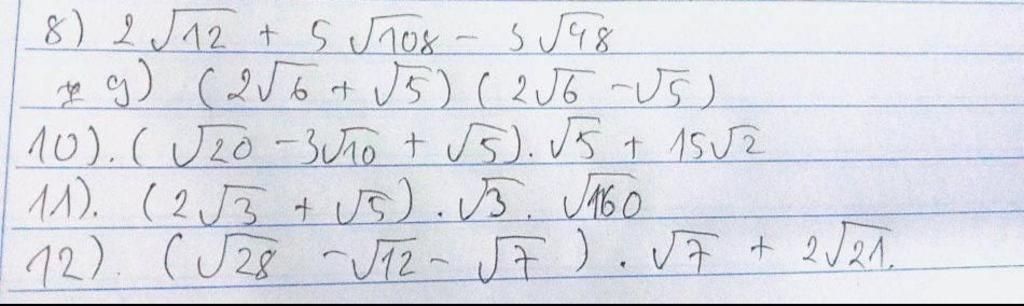 8) 2√12 + 5√108 - 5√48
* 9) (2√6 + √5) (2√6 - √5)
10). (√20 - 3√10 + √5). √5 + 15√2
11). (2√3 + √5). √3. √160
12). (√28 - √12 - √7). √7 + 2√21.